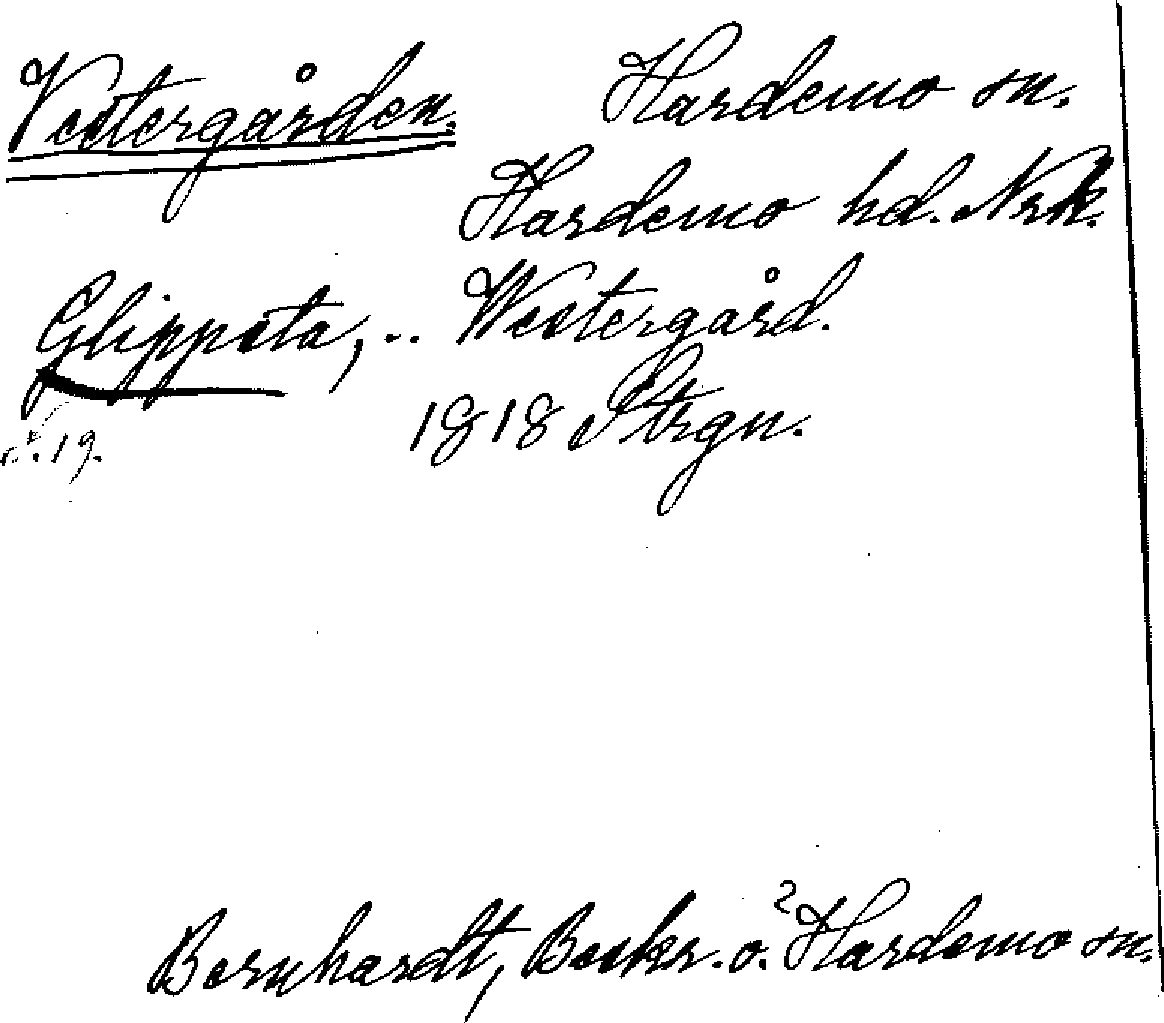 Vestergården. Hardemo sn.
Hardemo hd. Nrk.
Glippsta, .. Westergård.
1818 Strgn.
s. 19.
Bernhardt, Beskr. o. ²Hardemo sn.